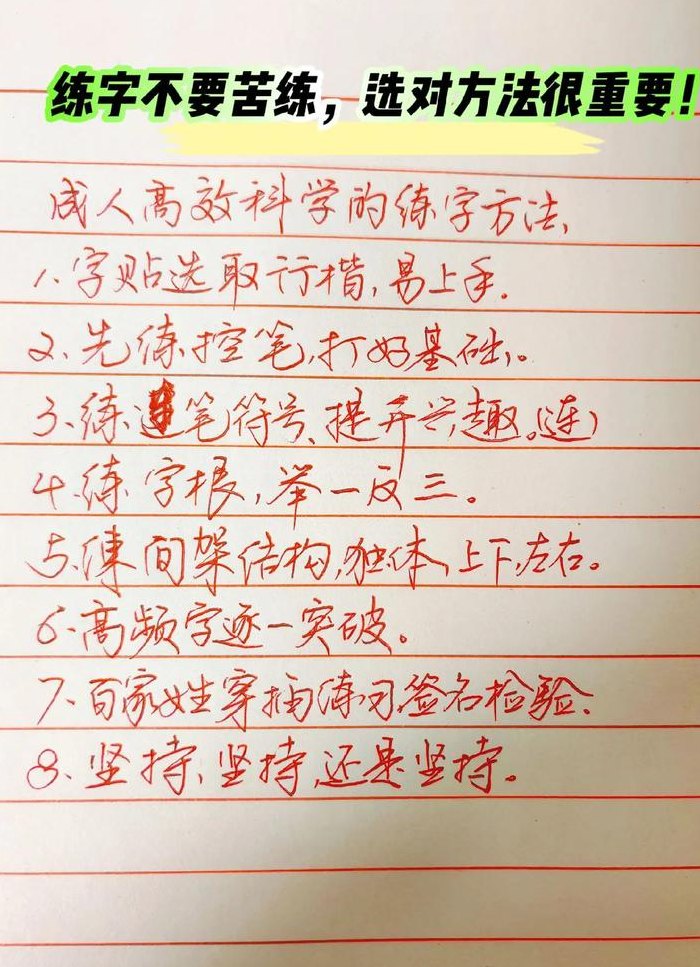 练字不要苦练，选对方法很重要！
成人高效科学的练字方法、
1、字贴选取行楷，易上手。
2、先练控笔，打好基础。
3、练笔符号、提升兴趣。（连）
4、练字根，举一反三。
5、练间架结构，独体、上下、左右。
6、高频字逐一突破。
7、百家姓穿插练习、签名检验、
8、坚持、坚持、还是坚持。